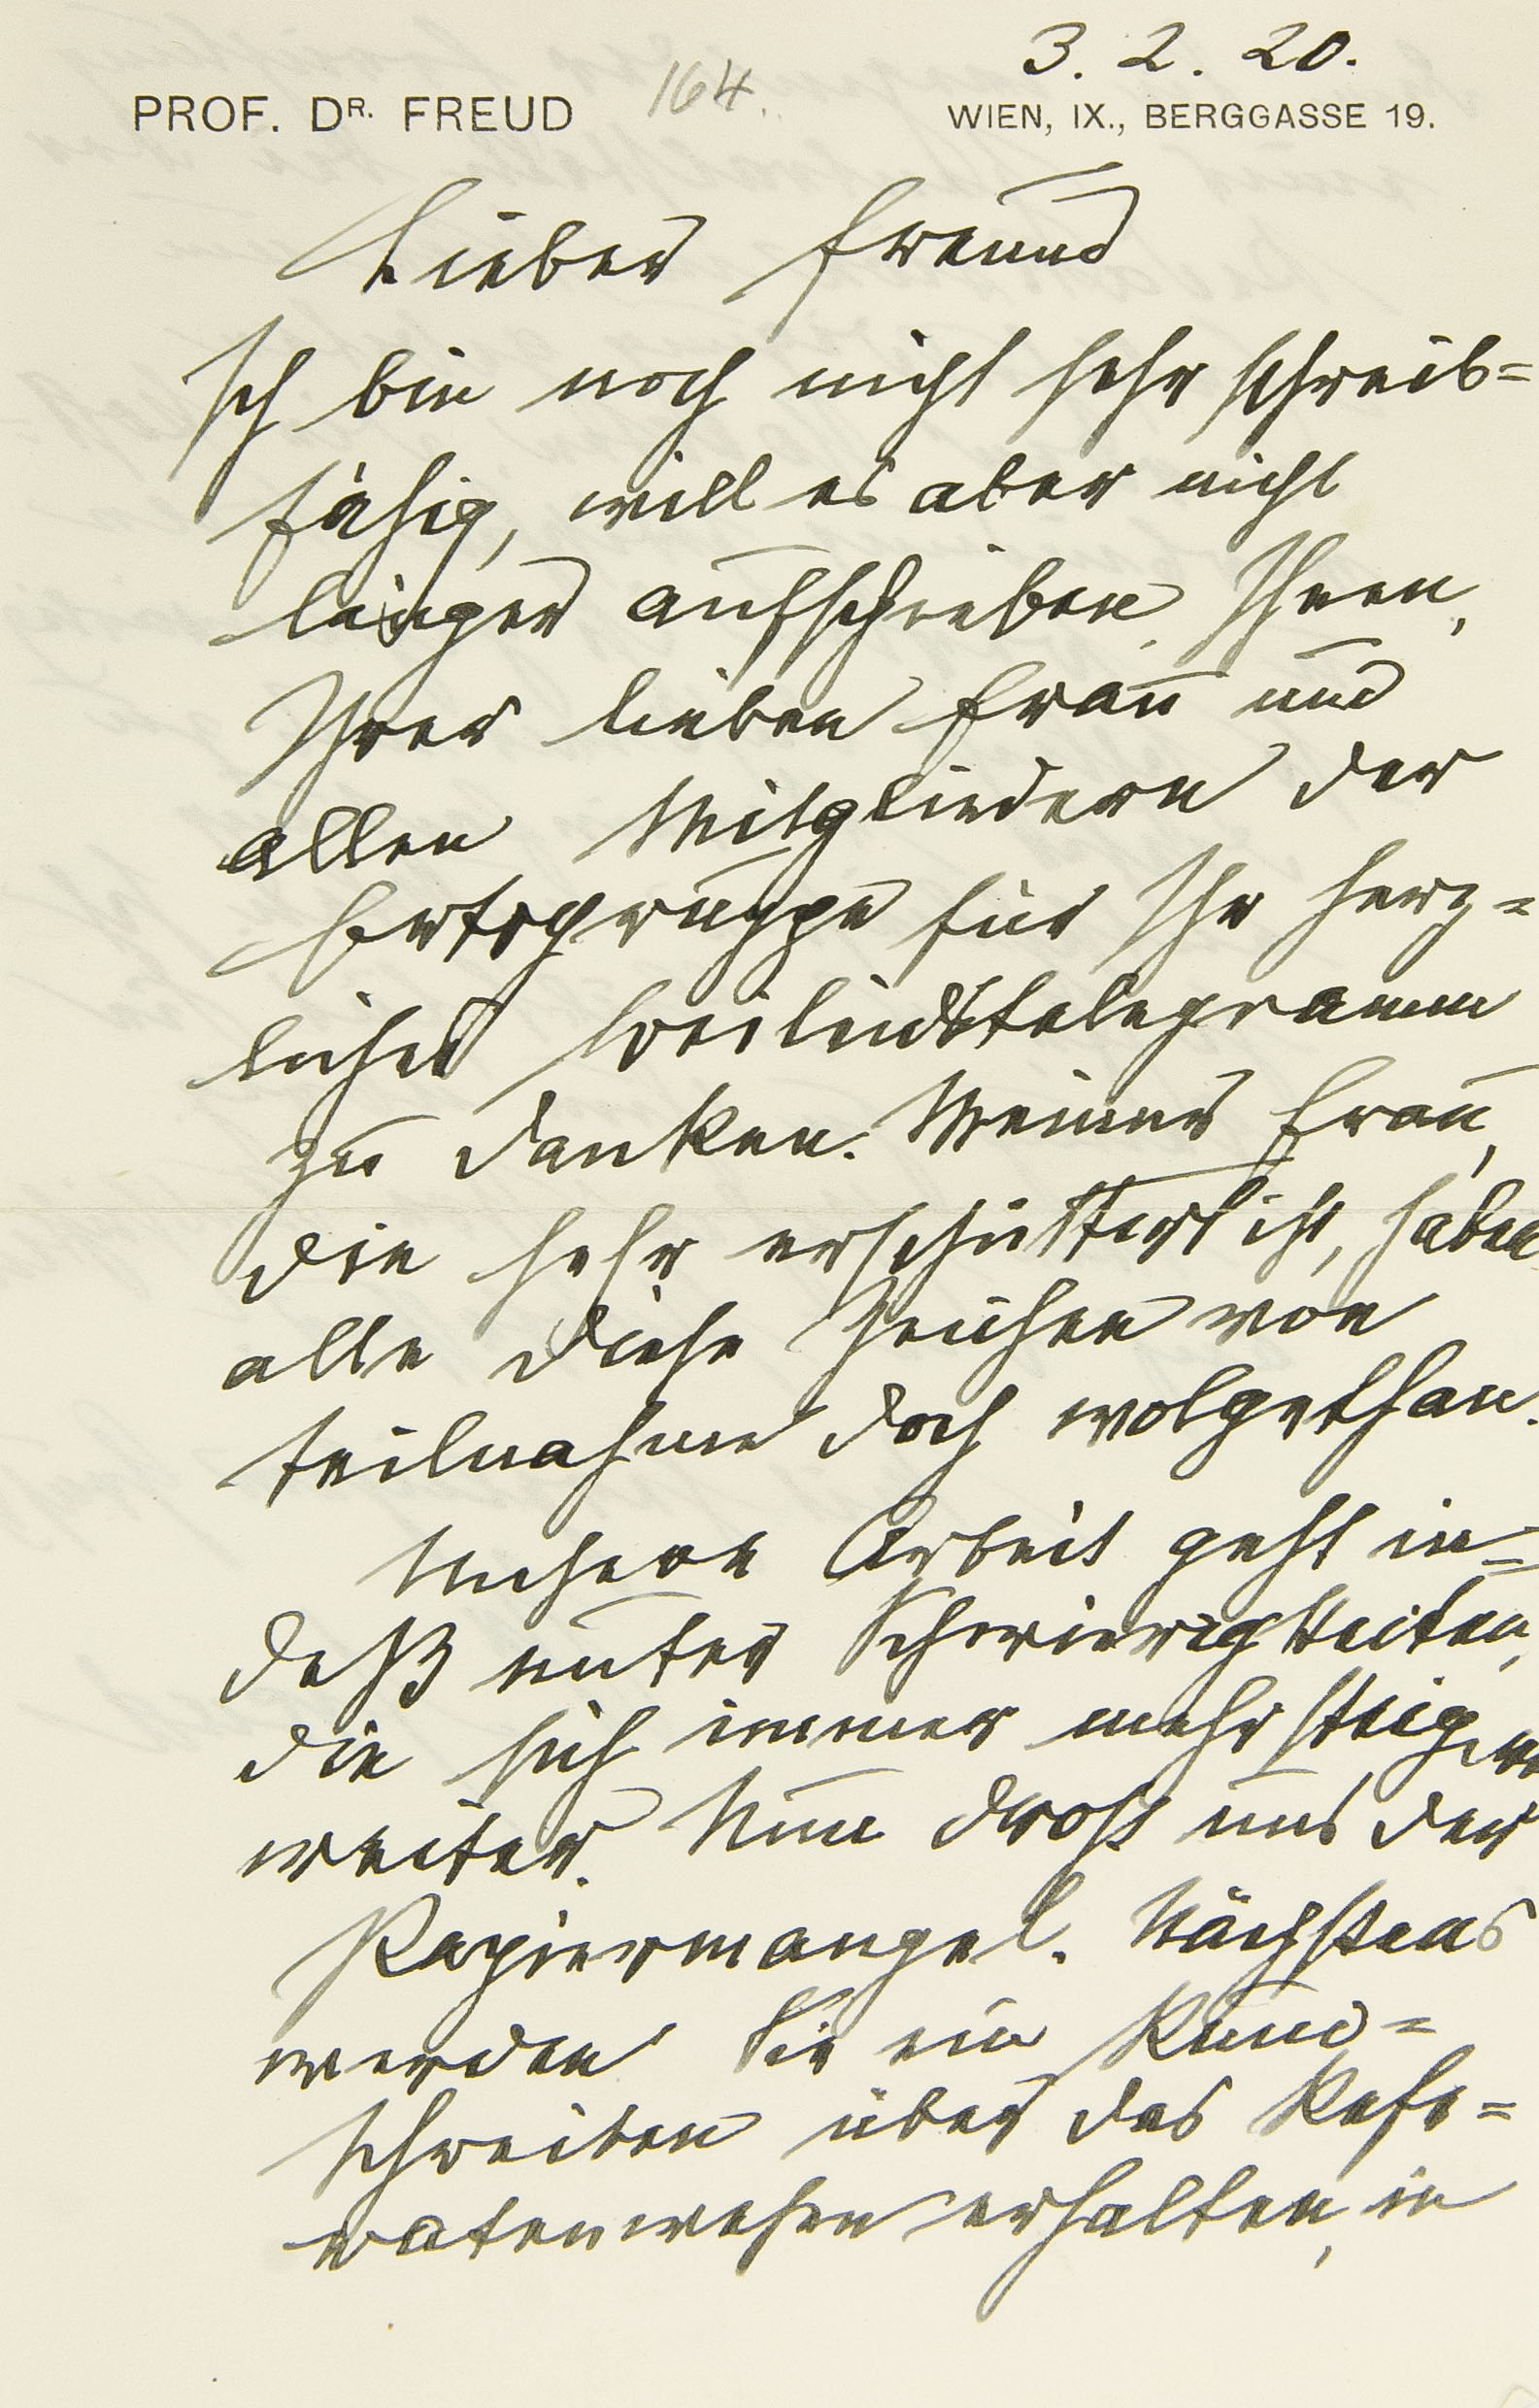 3. 2. 20.
PROF. DR. FREUD 164. WIEN, IX., BERGGASSE 19.
Lieber Freund
Ich bin noch nicht sehr schreib=
fähig, will es aber nicht
länger aufschieben, Ihnen,
Ihrer lieben Frau und
allen Mitgliedern der
Ortsgruppe für Ihr herz=
liches Beileidstelegramm
zu danken. Meiner Frau,
die sehr erschüttert ist, haben
alle diese Zeichen von
Teilnahme doch wolgethan.
Unsere Arbeit geht in=
deß unter Schwierigkeiten,
die sich immer mehr steigern
weiter. Nun droht uns der
Papiermangel. Nächstens
werden Sie ein Rund=
schreiben über das Refe=
ratenwesen erhalten, in